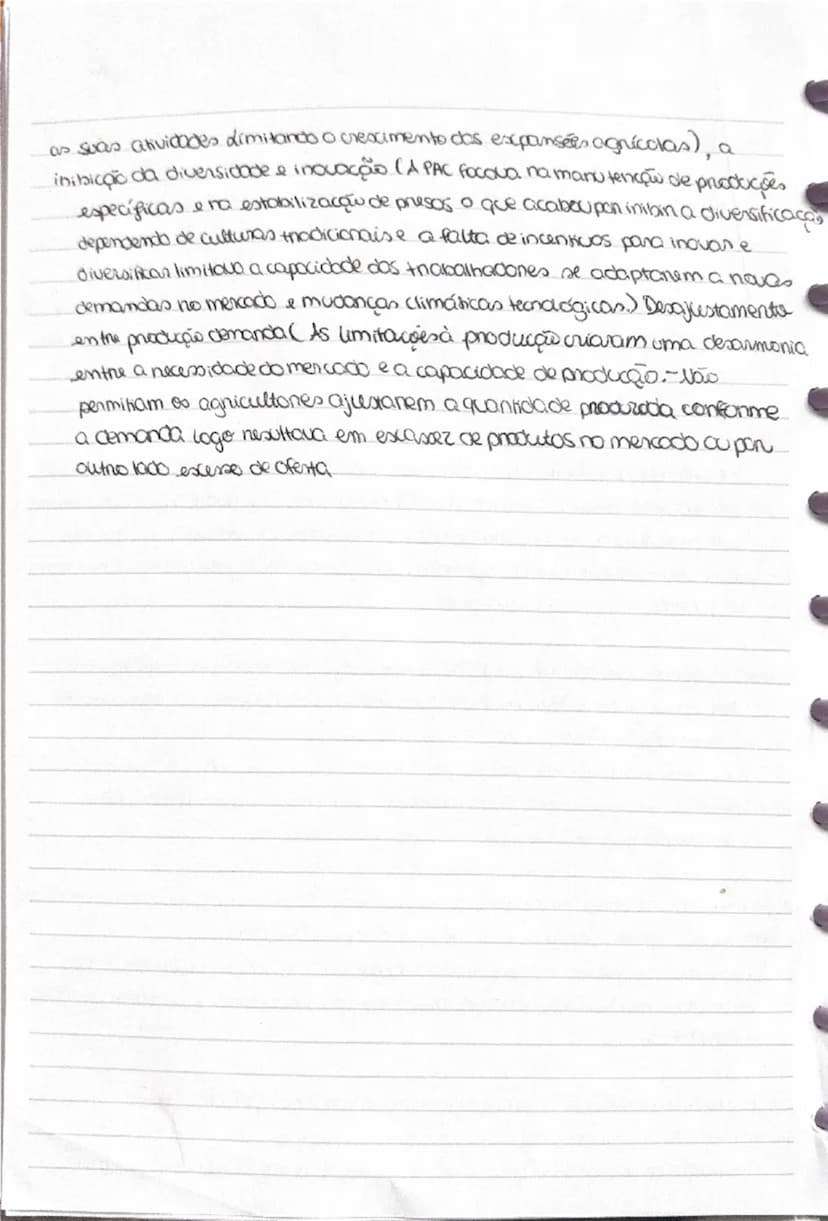 as suas atividades limitando o crescimento das expansões agrícolas), a
inibicção da diversidade e inovacção (A PAC focava na manutencção de producções
específicas e na estabilizacção de presos o que acabou por inibir a diversificacção
dependendo de culturas tradicionais e a falta de incentivos para inovar e
diversificar limitava a capacidade dos trabalhadores se adaptarem a novas
demandas no mercado e mudanças climáticas tecnológicas.) Desajustamento
entre producção demanda (As limitações à producção criaram uma desarmonia
entre a necessidade do mercado e a capacidade de producção. - Não
permitiam os agricultores ajustarem a quantidade produzida conforme
a demanda logo resultava em escassez de produtos no mercado ou por
outro lado excesso de oferta